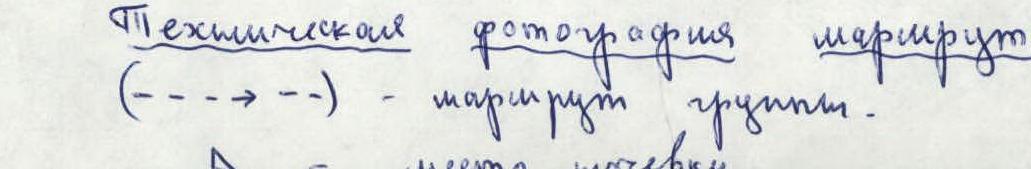 Техническая фотография маршрут
(- - - → - -) - маршрут группы.
- место ночёвки